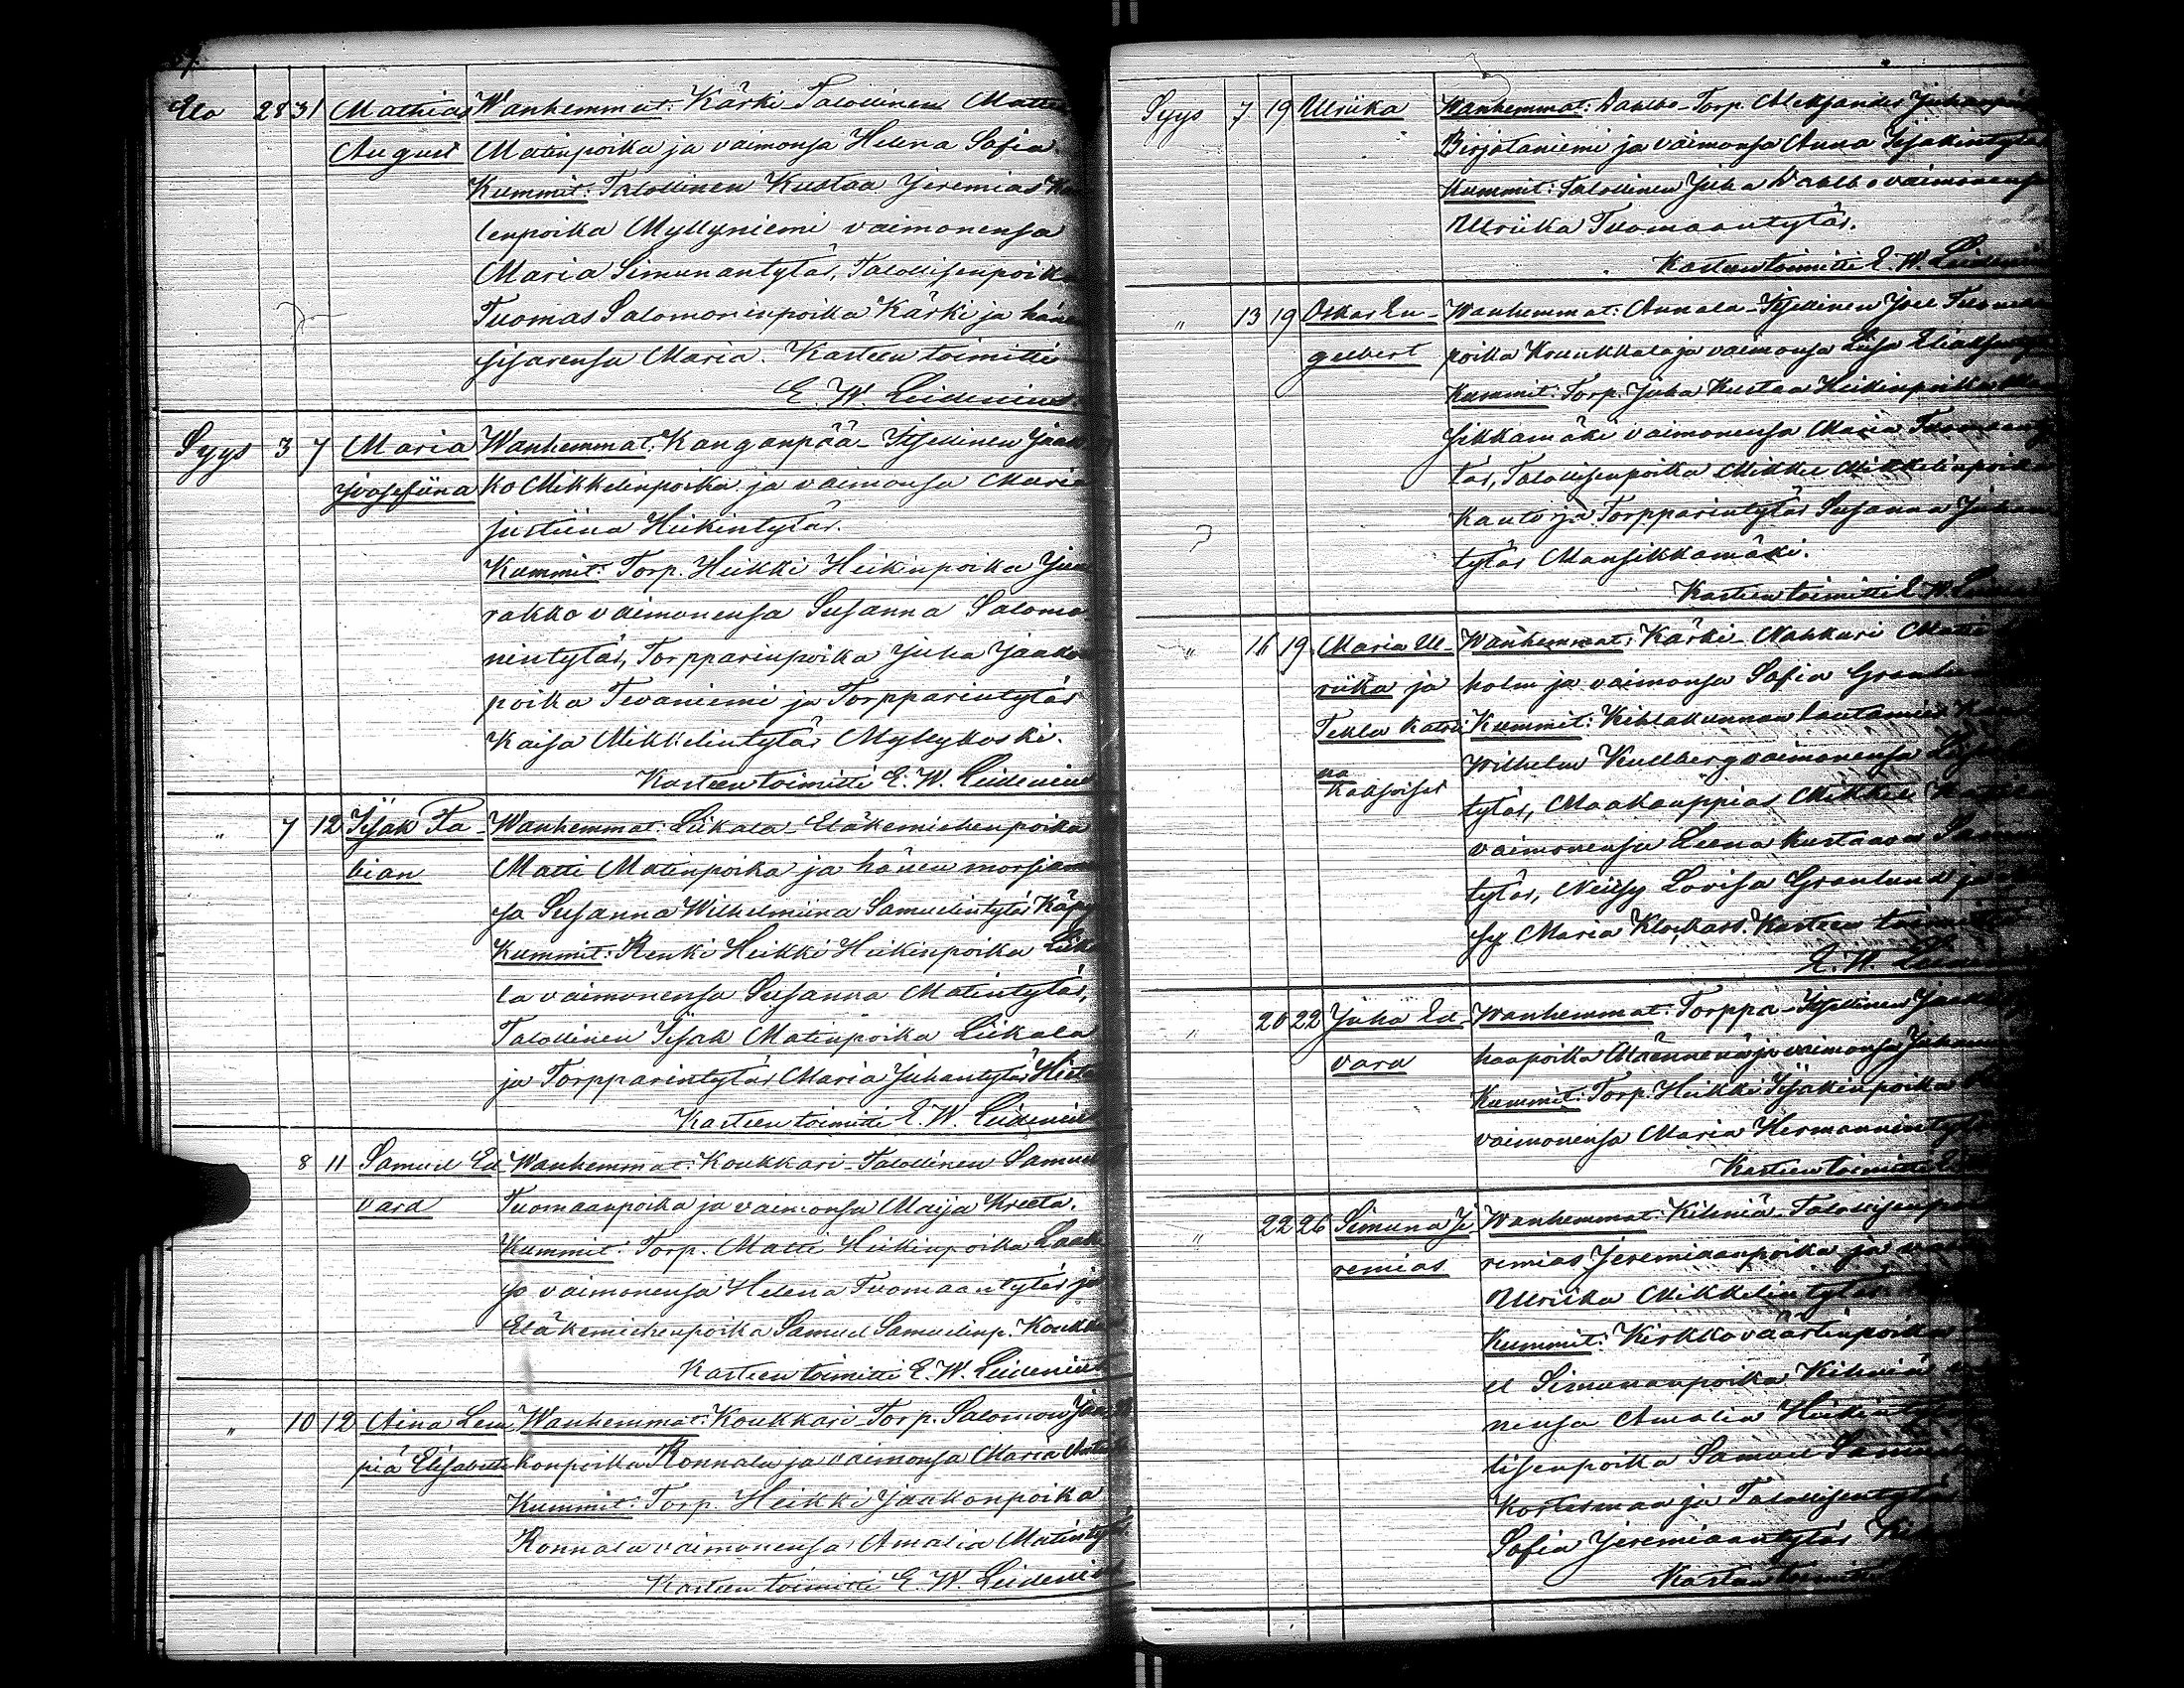 Elo 28 31 Mathias Wanhemmat: Kärki Talollinen Matti
August Matinpoika ja vaimonsa Helena Sofia.
Kummit: Talollinen Kustaa Jeremias
lenpoika Myllyniemi vaimonensa
Maria Simunantytär, Talollisenpoika
Tuomas Salomoninpoika Kärki ja hänen
sisarensa Maria. Kasteen toimitti
E. W. Leidenius
Syys 3 7 Maria Wanhemmat: Kanganpää - Itsellinen Jaak
Josefiina ko Mikkelinpoika ja vaimonsa Maria
Justiina Heikintytär.
Kummit: Torp. Heikki Heikinpoika
rakko vaimonensa Susanna Salomo
nintytär, Torpparinpoika Juha Jaakon
poika Tevaniemi ja Torpparintytär
Kaisa Mikkelintytär Myllykoski.
Kasteen toimitti E. W. Leidenius
" 7 12 Iisak Fa- Wanhemmat: Liikala - Eläkemiehenpoika
bian Matti Matinpoika ja hänen morsiamen
sa Susanna Wilhelmiina Samuelintytär
Kummit: Renki Heikki Heikinpoika Liika
la vaimonensa Susanna Matintytär,
Talollinen Iisak Matinpoika Liikala
ja Torpparintytär Maria Juhantytär
Kasteen toimitti E. W. Leidenius
8 11 Samuel Ed Wanhemmat: Koukkari - Talollinen Samuel
vard Tuomaanpoika ja vaimonsa Maija Kreeta.
Kummit: Torp. Matti Heikinpoika Laak
so vaimonensa Helena Tuomaantytär ja
Eläkemiehenpoika Samuel Samuelinp. Koukkari
Kasteen toimitti E. W. Leidenius
" 10 12 Aina Lem Wanhemmat: Koukkari Torp. Salomon Jaa
piä Elisabeth konpoika Ronnala ja vaimonsa Maria
Kummit: Torp. Heikki Jaakonpoika
Ronnala vaimonensa Amalia Matintytär
Kasteen toimitti E. W. Leidenius
Syys 7 19 Ulriika Wanhemmat: Dahlbo - Torp. Aleksander Juhanpoika
Birjataniemi ja vaimonsa Anna Iisakintytär
Kummit: Talollinen Juha Dahlbo vaimonensa
Ulriika Tuomaantytär.
Kasteen toimitti E. W. Leidenius
" 13 19 Oskar En- Wanhemmat: Annala - Itsellinen Joel
gelbert poika Kruukkala ja vaimonsa Liisa
Kummit: Torp. Juha Kustaa Heikinpoika Man
sikkamäki vaimonensa Maria Tuomaanty
tär, Talollisenpoika Mikkel Mikkelinpoika
Kanto ja Torpparintytär Susanna Juhan
tytär Mansikkamäki.
Kasteen toimitti E. W.
" 16 19 Maria Ul- Wanhemmat: Kärki - Nahkuri Matti
riika ja holm ja vaimonsa Sofia
Tekla Katri Kummit: Kihlakunnan lautamies
na Wilhelm Kullberg vaimonensa
Kaksoiset tytär, Maakauppias Mikkel
vaimonensa Leena Kustaava
tytär, Neitsy Lovisa Granlund ja
sy Maria Klockars. Kasteen toimitti
E. W.
" 20 22 Juha Ed- Wanhemmat: Torppa - Itsellinen
vard hanpoika Männenä ja vaimonsa
Kummit: Torp. Heikki Iisakinpoika
vaimonensa Maria Hermannintytär
Kasteen toimitti
" 22 26 Simuna Je Wanhemmat: Kihniä - Talollisenpoika
remias remias Jeremiaanpoika ja
Ulriika Mikkelintytär
Kummit: Kirkkoväärtinpoika
el Simunanpoika Kihniä
nensa Amalia
lisenpoika Samuel
Kortesmaa ja Talollisentytär
Sofia Jeremiaantytär
Kasteen toimitti